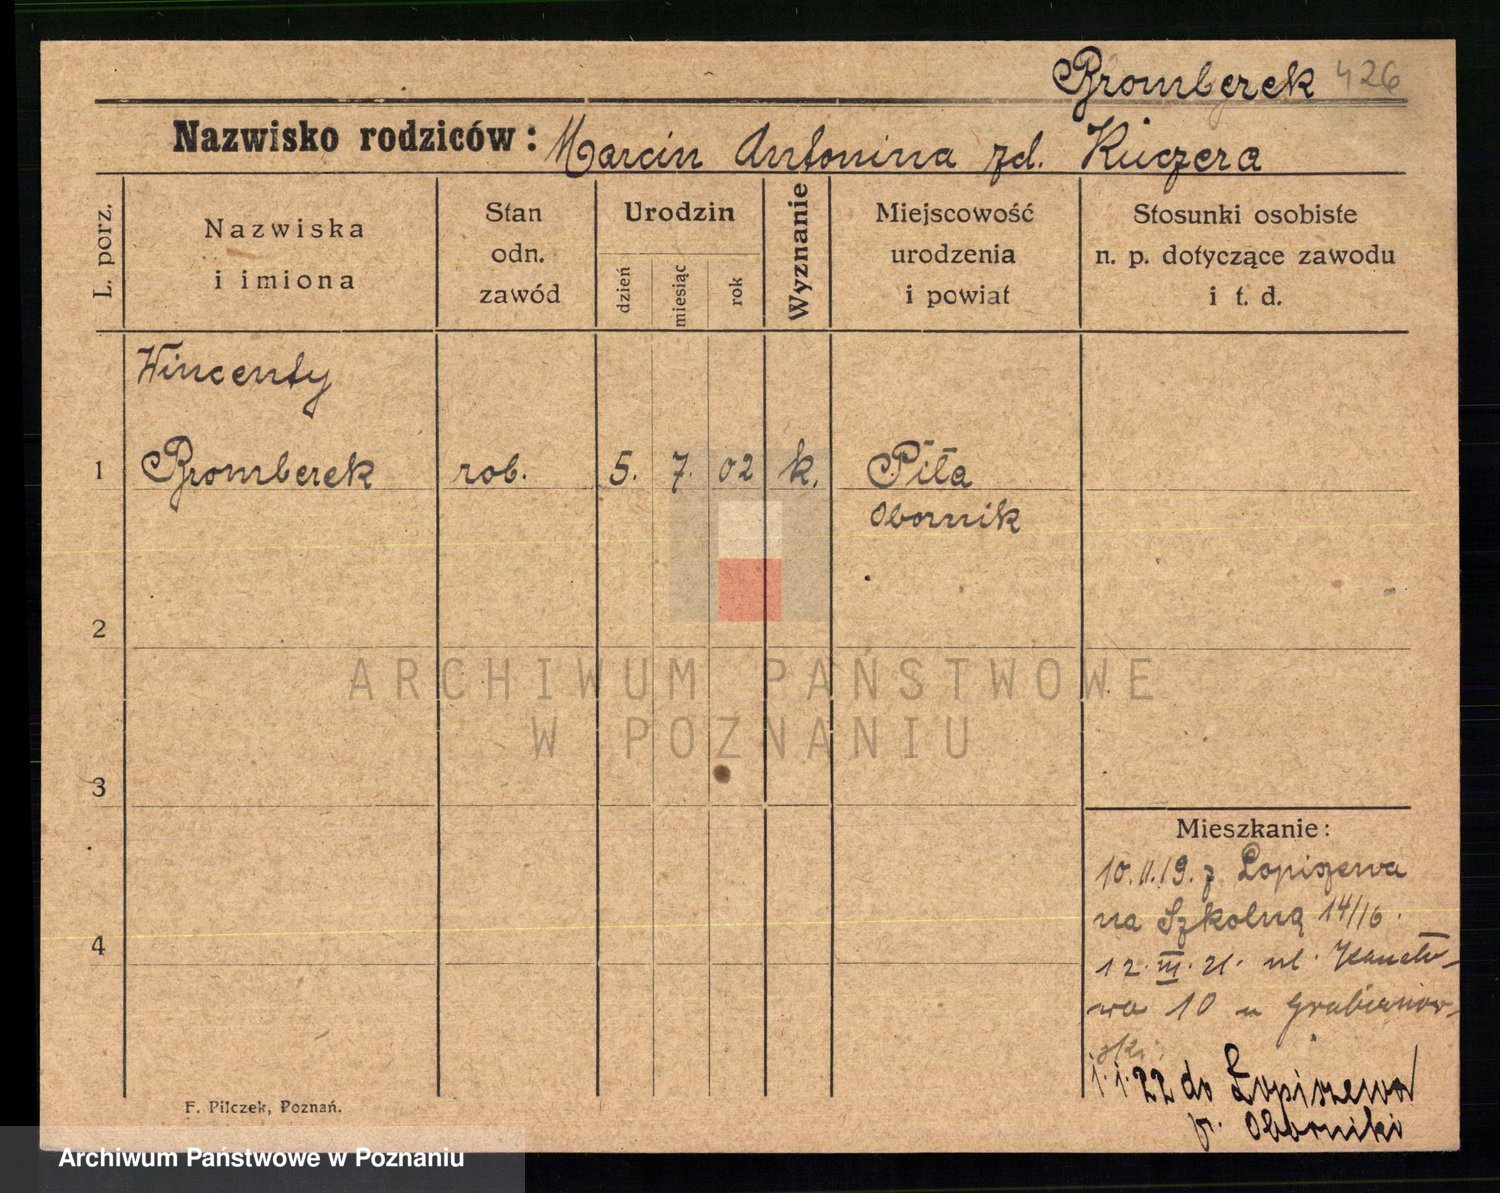 Bromberek 426
Nazwisko rodziców: Marcin Antonina zd. Kuczera
L. porz.
Nazwiska
i imiona
Stan
odn.
zawód
Urodzin
dzień
miesiąc
rok
Wyznanie
Miejscowość
urodzenia
i powiat
Stosunki osobiste
n. p. dotyczące zawodu
i t. d.
Wincenty
1 Bromberek rob. 5. 7. 02 k. Piła
Obornik
2
3
4
Mieszkanie:
10.11.19. z Łopiszewa
na Szkolną 14/16.
12.III.21. ul.
wa 10 u Grabianow-
ski
1.1.22 do Łopiszewa
p. Oborniki
F. Pilczek, Poznań.
ARCHIWUM PAŃSTWOWE
W POZNANIU
Archiwum Państwowe w Poznaniu